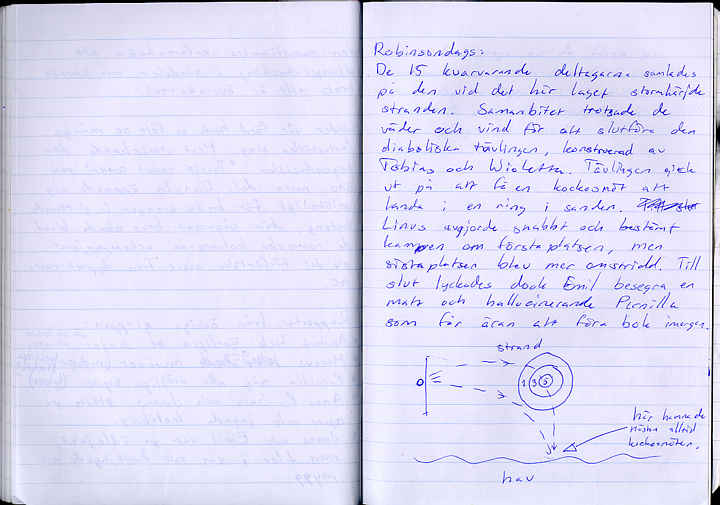 Robinsondags:
De 15 kvarvarande deltagarna samlades
på den vid det här laget stormhärjde
stranden. Sammanbitet trotsade de
väder och vind för att slutföra den
diaboliska tävlingen, konstruerad av
Tobias och Wioletta. Tävlingen gick
ut på att få en kockosnöt att
landa i en ring i sanden.
Linus avgjorde snabbt och bestämt
kampen om förstaplatsen, men
sistaplatsen blev mer omstridd. Till
slut lyckades dock Emil besegra en
matt och hallucinerande Pernilla
som får äran att föra bok imorgon.
strand
1 3 5
här hamnade
nästan alltid
kockosnöten.
hav